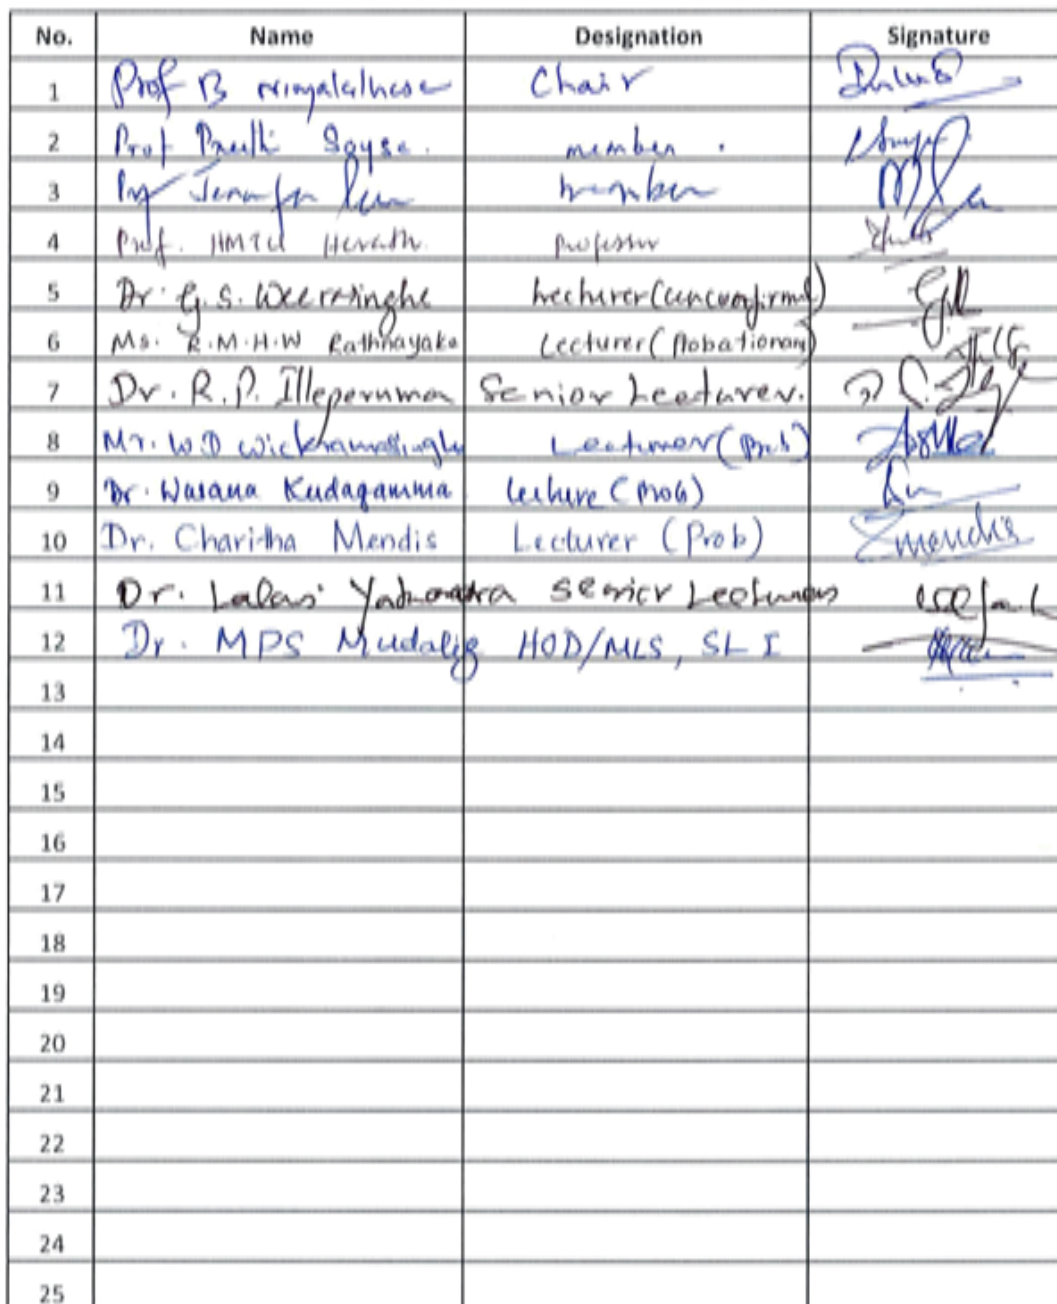 No. Name Designation Signature
1 Prof B Chair
2 Prof Preethi Soysa. member .
3 Prof member
4 Prof. HMTU Herath. Professor
5 Dr. G. S. Weerasinghe Lecturer (unconfirmed)
6 Ms. R.M.H.W Rathnayake Lecturer (Probationary)
7 Dr. R. P. Illeperuma Senior Lecturer.
8 Mr. W.D Wickramasinghe Lecturer (Prob)
9 Dr. Wasana Kudagamma Lecture (Prob)
10 Dr. Charitha Mendis Lecturer (Prob) Mendis
11 Dr. Senior Lecturer
12 Dr. MPS Mudalig HOD/MLS, SL I
13
14
15
16
17
18
19
20
21
22
23
24
25